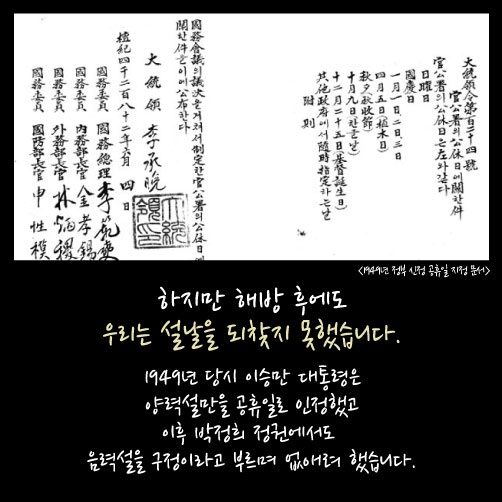 大統領令第百二十四號
官公署의公休日에關한件
官公署의公休日은左와같다
日曜日
國慶日
一月一、二、三日
四月五日(植木日)
秋夕(秋收節)
十月九日(한글날)
十二月二十五日(基督誕生日)
其他政府에서隨時指定하는날
附則
國務會議의議決을거처서制定한官公署의公休日에
關한件을이에公布한다
大統領 李承晩
檀紀四千二百八十二年六月 四日
國務委員 國務總理 李範奭
國務委員 內務部長官 金孝錫
國務委員 外務部長官 林炳稷
國務委員 國防部長官 申性模
<1949년 정부 신정 공휴일 지정 문서>
하지만 해방 후에도
우리는 설날을 되찾지 못했습니다.
1949년 당시 이승만 대통령은
양력설만을 공휴일로 인정했고
이후 박정희 정권에서도
음력설을 구정이라고 부르며 없애려 했습니다.